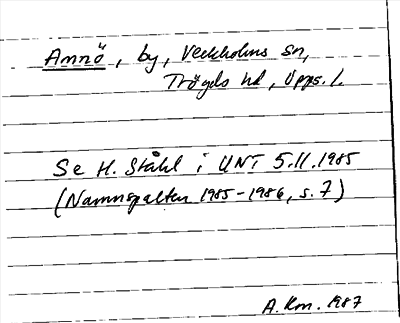 Annö, by, Veckholms sn,
Trögds hd, Upps. l.
Se H. Ståhl i UNT 5.11.1985
(Namnspalten 1985-1986, s. 7)
A. Rm. 1987